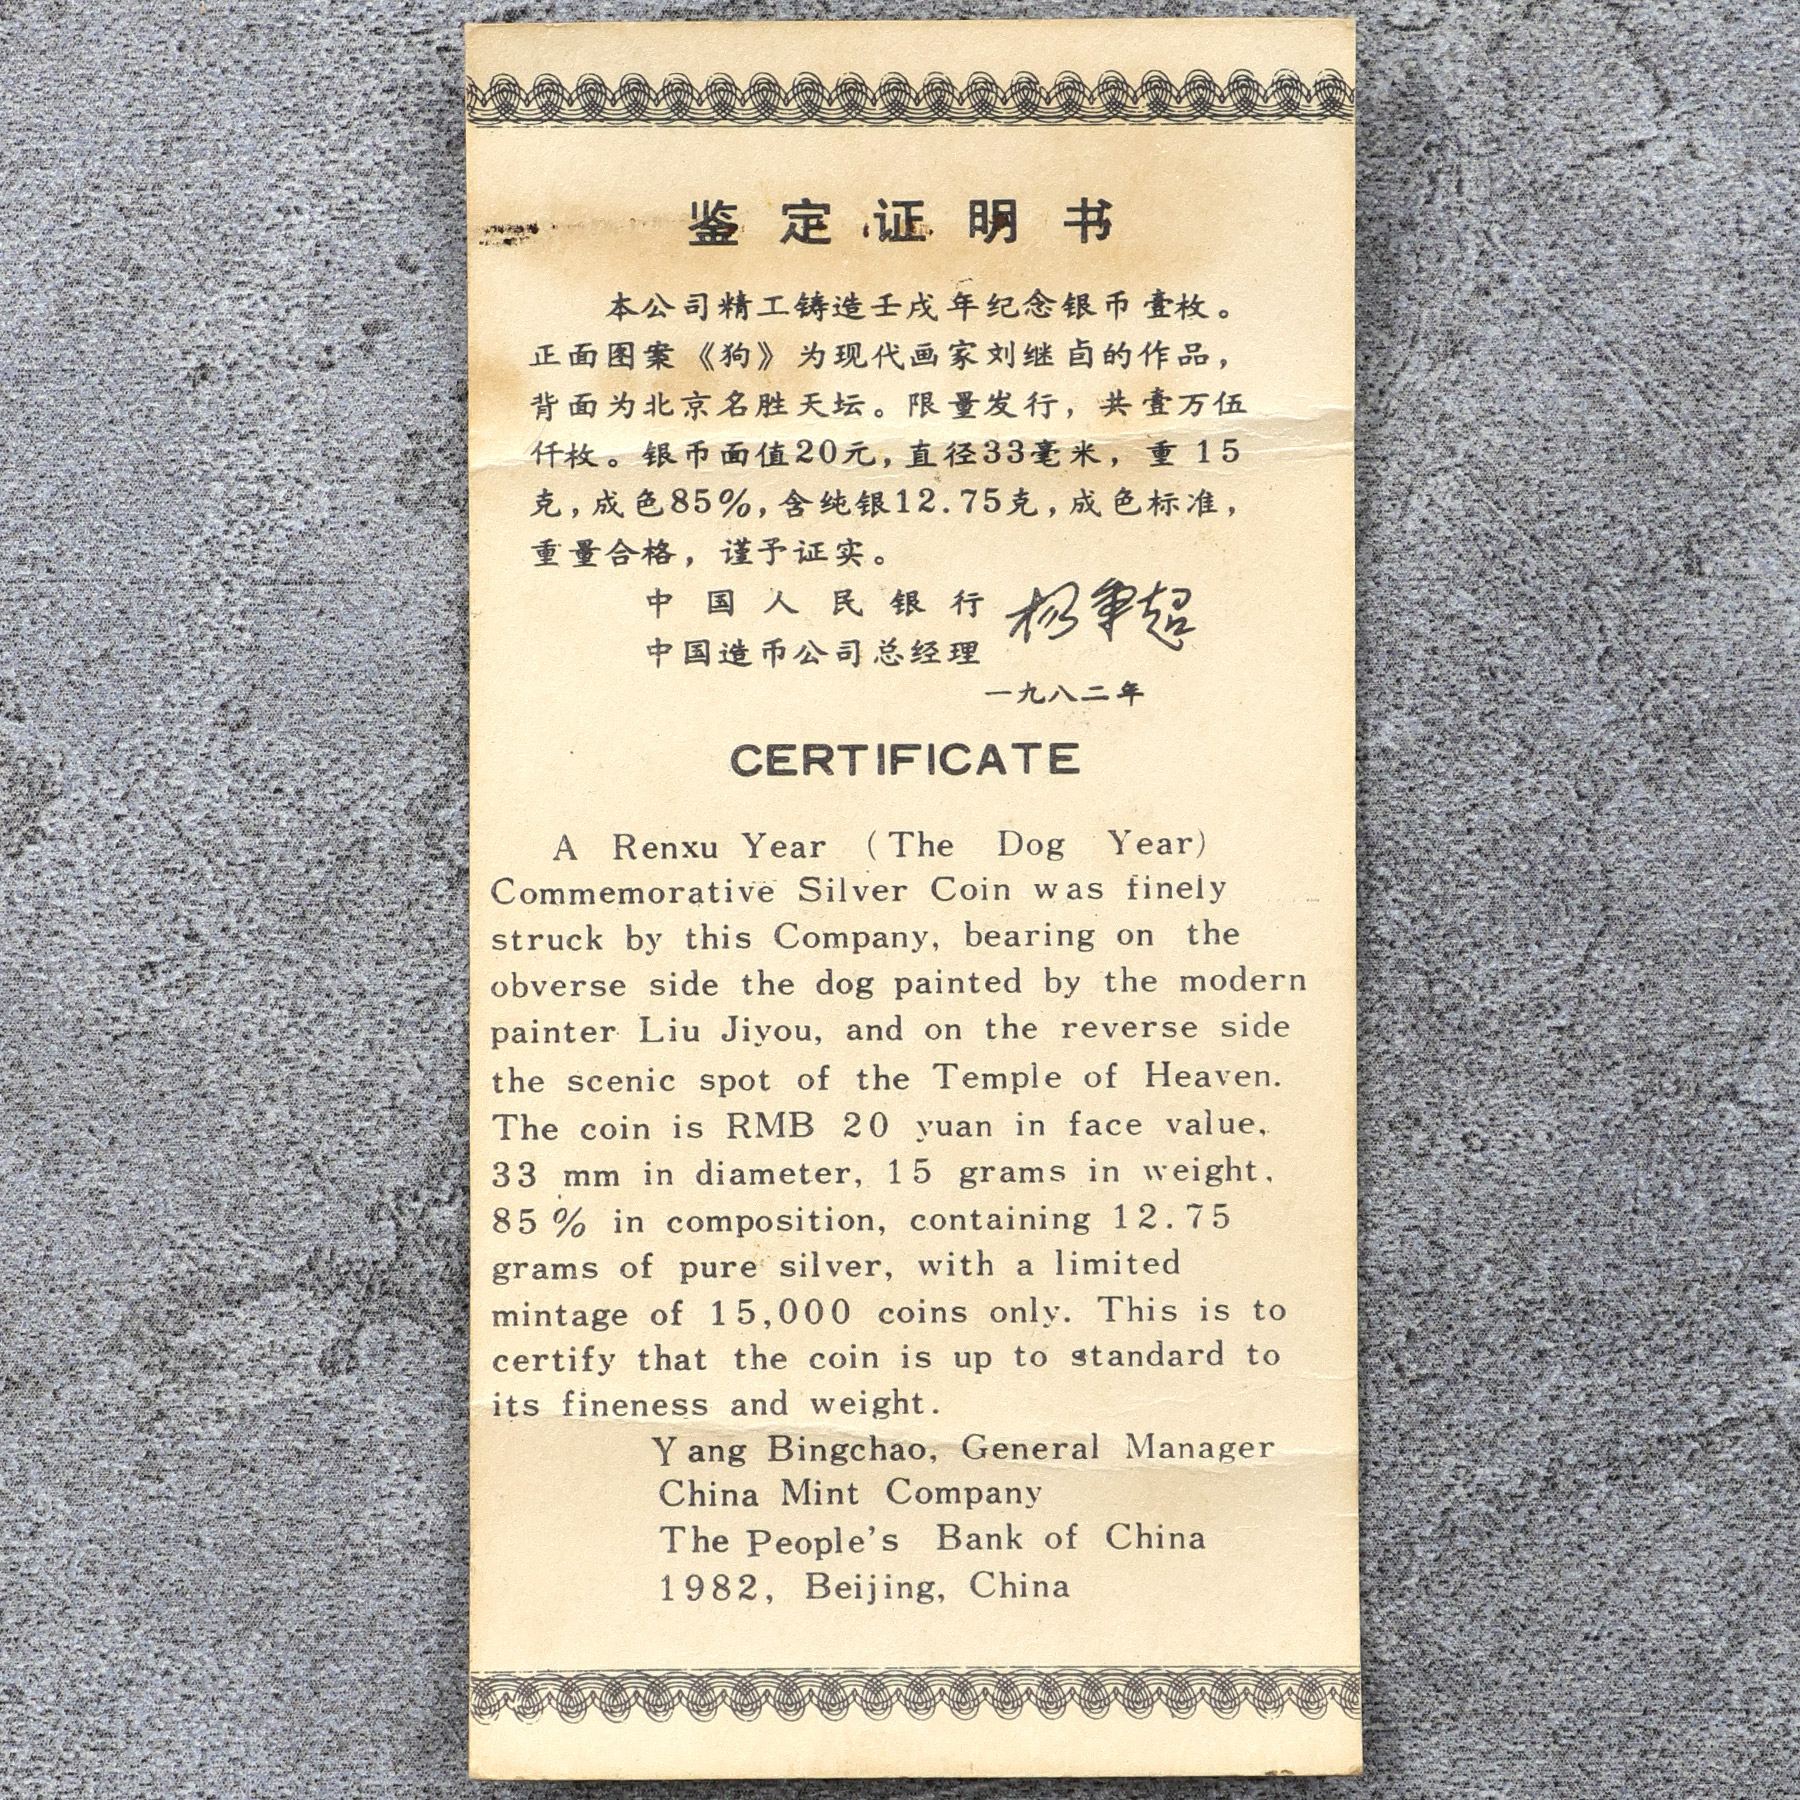 鉴定证明书
本公司精工铸造壬戌年纪念银币壹枚。
正面图案《狗》为现代画家刘继卣的作品，
背面为北京名胜天坛。限量发行，共壹万伍
仟枚。银币面值20元，直径33毫米，重15
克，成色85%，含纯银12.75克，成色标准，
重量合格，谨予证实。
中国人民银行
中国造币公司总经理 杨秉超
一九八二年
CERTIFICATE
A Renxu Year (The Dog Year)
Commemorative Silver Coin was finely
struck by this Company, bearing on the
obverse side the dog painted by the modern
painter Liu Jiyou, and on the reverse side
the scenic spot of the Temple of Heaven.
The coin is RMB 20 yuan in face value,
33 mm in diameter, 15 grams in weight,
85% in composition, containing 12.75
grams of pure silver, with a limited
mintage of 15,000 coins only. This is to
certify that the coin is up to standard to
its fineness and weight.
Yang Bingchao, General Manager
China Mint Company
The People's Bank of China
1982, Beijing, China